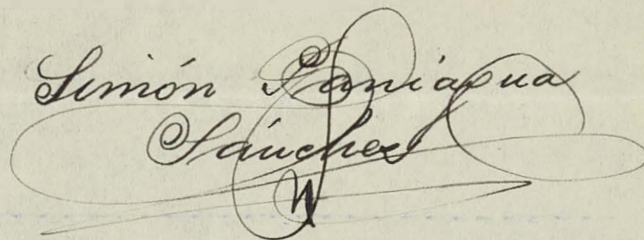 Simón Paniagua
Sánchez